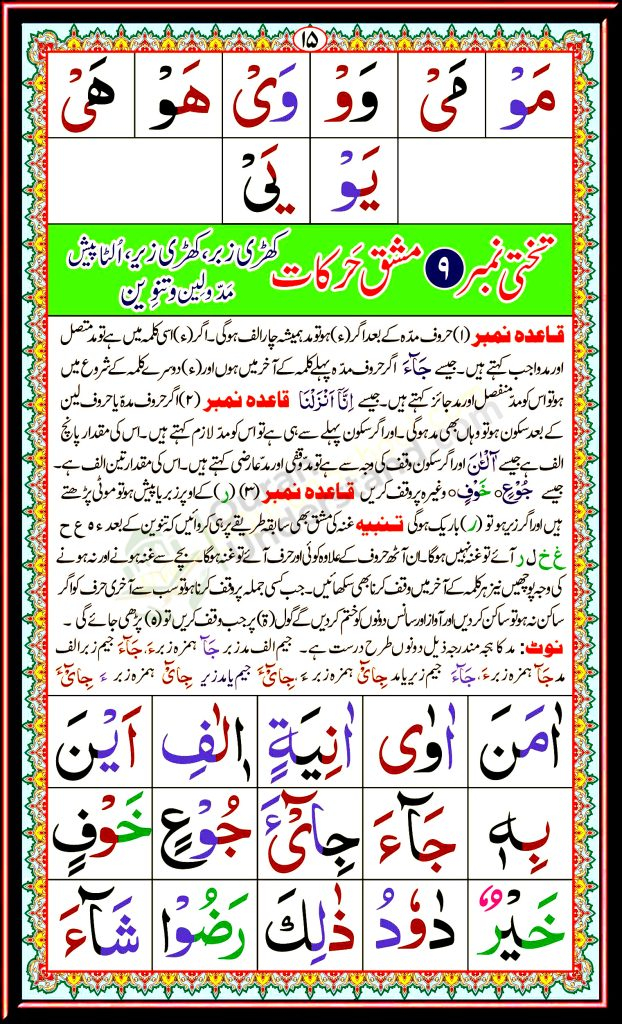 ۱۵
مَوْ مَیْ وَوْ وَیْ هَوْ هَیْ
یَوْ یَیْ
تختی نمبر ۹ مشق حَرکات کھڑی زبر، کھڑی زیر، اُلٹا پیش
مَدّ و لین و تنوین
قاعدہ نمبر (۱) حروف مدّہ کے بعد اگر (ء) ہو تو مد ہمیشہ چار الف ہوگی۔ اگر (ء) اسی کلمہ میں ہے تو مد متصل
اور مد واجب کہتے ہیں۔ جیسے جَآءَ اگر حروف مدّہ پہلے کلمہ کے آخر میں ہوں اور (ء) دوسرے کلمہ کے شروع میں
ہو تو اس کو مدّ منفصل اور مد جائز کہتے ہیں۔ جیسے اِنَّآ اَنْزَلْنَا قاعدہ نمبر (۲) اگر حروف مدہ یا حروف لین
کے بعد سکون ہو تو وہاں بھی مد ہوگی۔ اور اگر سکون پہلے سے ہی ہے تو اس کو مدّ لازم کہتے ہیں۔ اس کی مقدار پانچ
الف ہے جیسے آلْـٰٔنَ اور اگر سکون وقف کی وجہ سے ہے تو مدّ وقفی اور مدّ عارضی کہتے ہیں۔ اس کی مقدار تین الف ہے۔
جیسے جُوْعٍ ۞ خَوْفٍ ۞ وغیرہ پر وقف کریں قاعدہ نمبر (۳) (ر) کے اوپر زبر یا پیش ہو تو موٹی پڑھتے
ہیں اور اگر زیر ہو تو (ر) باریک ہوگی تنبیہ غنہ کی مشق بھی سابقہ طریقے پر ہی کروائیں کہ تنوین کے بعد ء ہ ع ح
غ خ ل ر آئے تو غنہ نہیں ہوگا ان آٹھ حروف کے علاوہ کوئی اور حرف آئے تو غنہ ہوگا۔ بچے سے غنہ ہونے اور نہ ہونے
کی وجہ پوچھیں نیز ہر کلمہ کے آخر میں وقف کرنا بھی سکھائیں۔ جب کسی جملہ پر وقف کرنا ہو تو سب سے آخری حرف کو اگر
ساکن نہ ہو تو ساکن کردیں اور آواز اور سانس دونوں کو ختم کردیں گے گول (ة) پر جب وقف کریں تو (ہ) پڑھی جائے گی۔
نوٹ: مد کا ہجہ مندرجہ ذیل دونوں طرح درست ہے۔ جیم الف مد زبر جَآ ہمزہ زبر ءَ، جَآءَ جیم زبر الف
مد جَآ ہمزہ زبر ءَ، جَآءَ جیم زیر یا مد جِایْٓ ہمزہ زبر ءَ، جِایْٓءَ جیم یا مد زیر جِایْٓ ہمزہ زبر ءَ جِایْٓءَ
اٰمَنَ اٰوٰی اٰنِیَةٍ اٖلٰفِ اَیْنَ
بِهٖ جَآءَ جِایْٓءَ جُوْعٍ خَوْفٍ
خَیْرٌ دَاوٗدُ ذٰلِكَ رَضُوْا شَآءَ